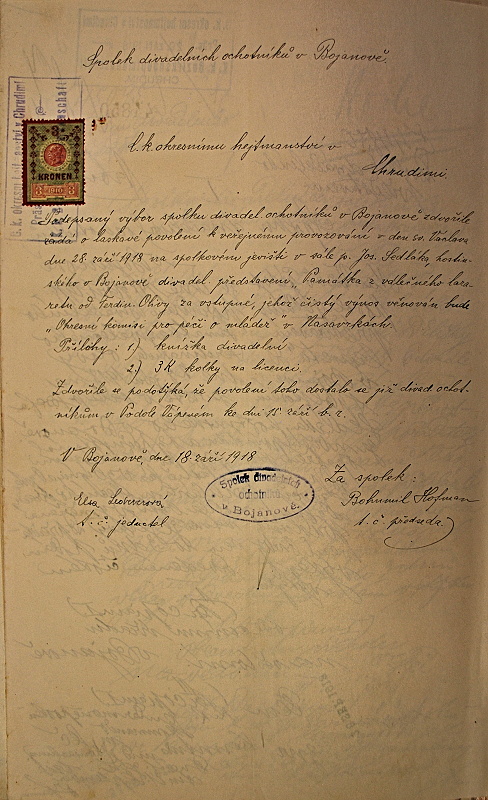 Spolek divadelních ochotníků v Bojanově.
C. k. okresnímu hejtmanství v
Chrudimi
3
KRONEN
3 1910 3
Podepsaný výbor spolku divadel. ochotníků v Bojanově zdvořile
žádá o laskavé povolení k veřejnému provozování v den sv. Václava
dne 28. září 1918 na spolkovém jevišti v sále p. Jos. Sedláka, hostin-
ského v Bojanově divadel. představení, Památka z válečného laza-
retu od Ferdin. Olivy za vstupné, jehož čistý výnos věnován bude
„Okresní komisi pro péči o mládež" v Nasavrkách.
Přílohy: 1) knížka divadelní
2.) 3K kolky na licenci.
Zdvořile se podotýká, že povolení toho dostalo se již divad. ochot-
níkům v Podole Vápeném ke dni 15 září b. r.
V Bojanově, dne 18. září 1918
Za spolek:
Spolek divadelních
ochotníků
v Bojanově.
Elsa
t. č. jednatel
Bohumil Hofman
t. č. předseda